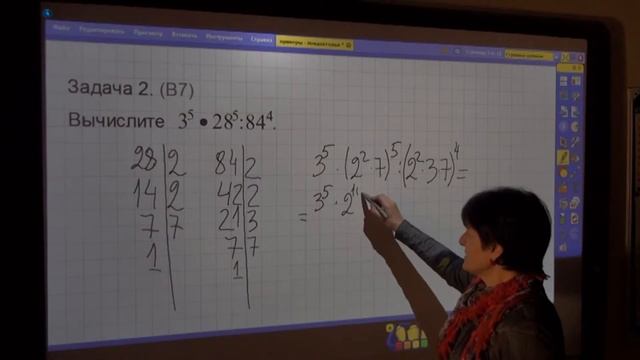 Файл Редактировать Просмотр Вставить Инструменты Справка
Задача 2. (В7)
Вычислите 3⁵ • 28⁵:84⁴.
28|2
14|2
7|7
1
84|2
42|2
21|3
7|7
1
3⁵ · (2² · 7)⁵ : (2² · 3 7)⁴ =
= 3⁵ · 2¹